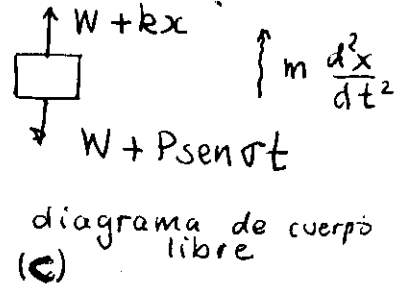 W + kx
m d²x/dt²
W + P sen σt
diagrama de cuerpo
libre
(c)